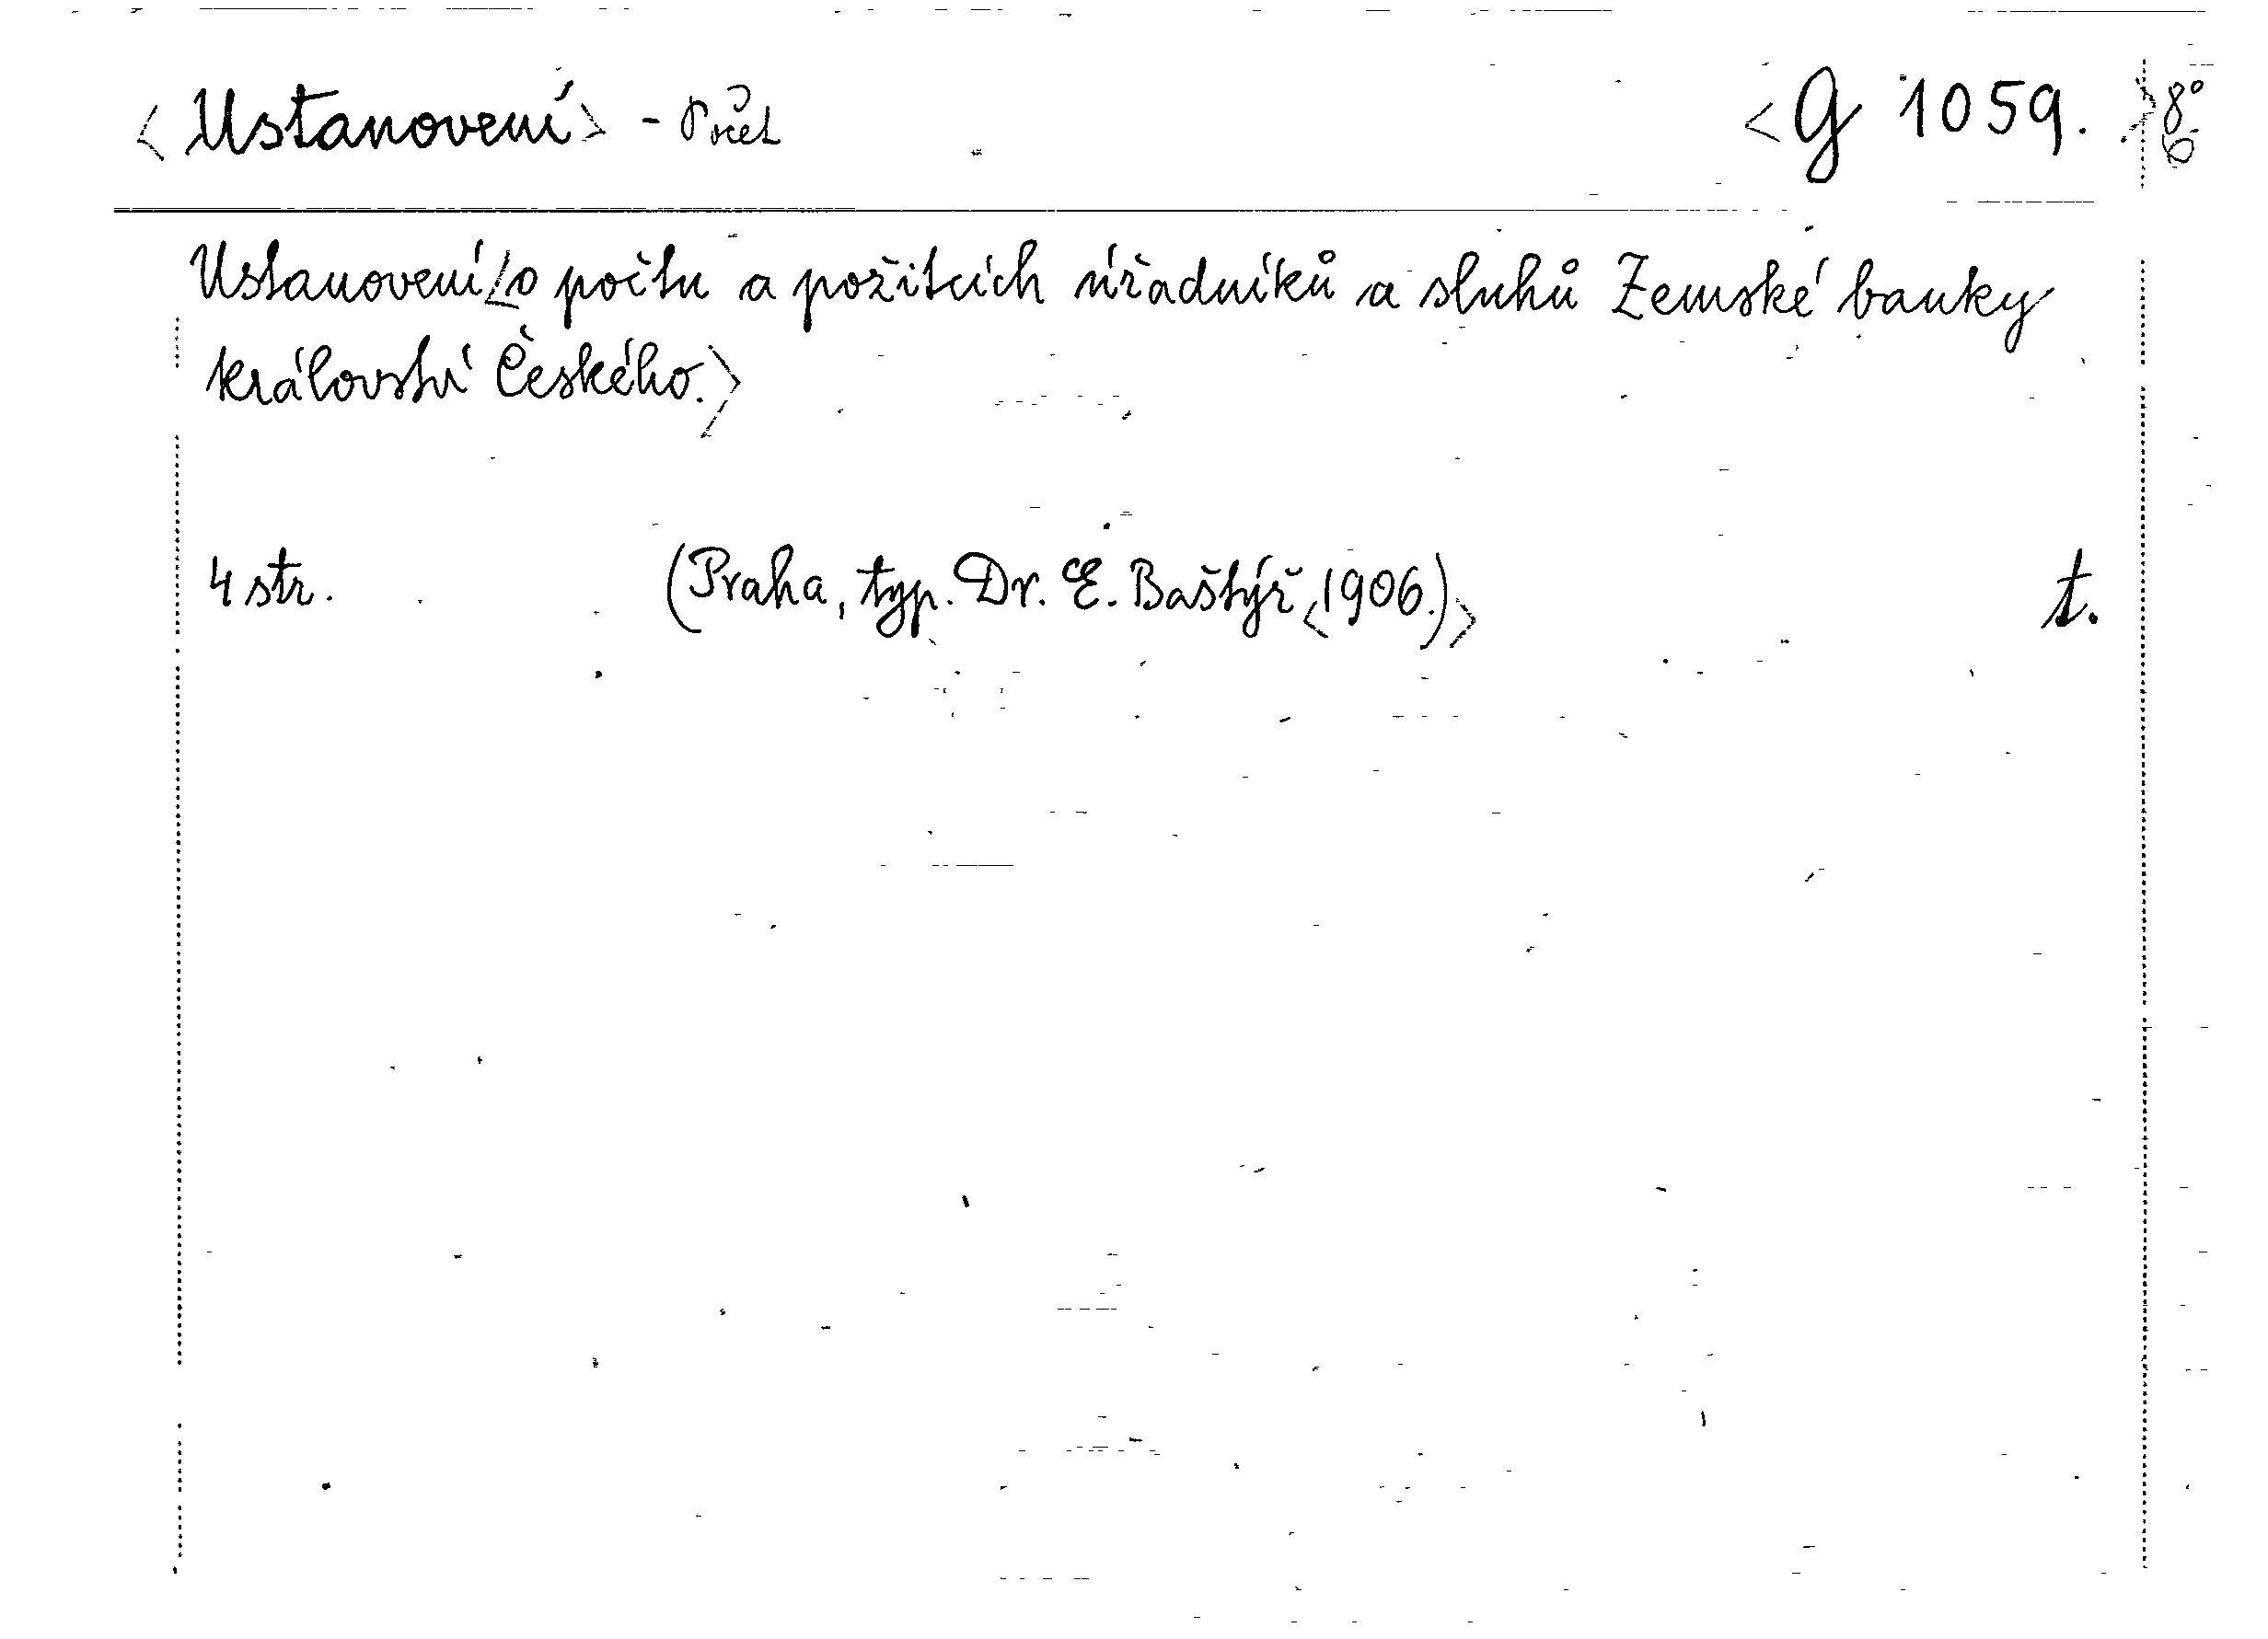 <Ustanovení> - Počet <G 1059.> 8°
6
Ustanovení <o počtu a požitcích úřadníků a sluhů Zemské banky
království Českého.>
4 str. (Praha, typ. Dr. E. Baštýř <1906.)> t.